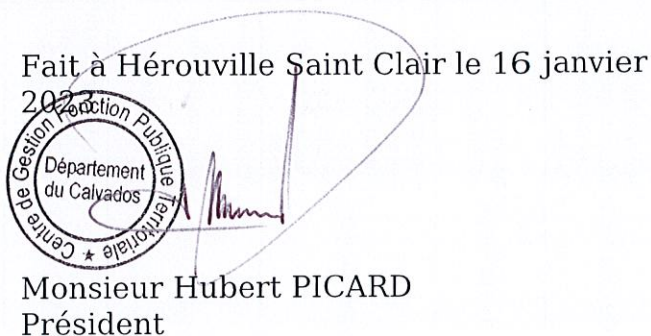 Fait à Hérouville Saint Clair le 16 janvier
2023
Centre de Gestion Fonction Publique Territoriale ★
Département
du Calvados
Monsieur Hubert PICARD
Président